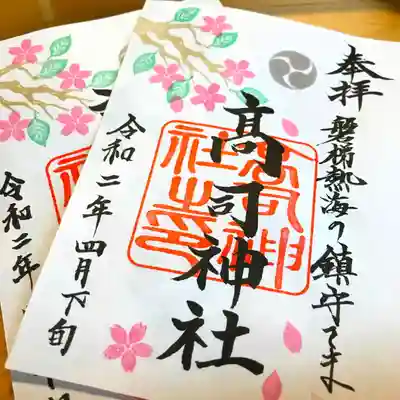 奉拝
磐梯熱海の鎮守てます
高司神社
高司神社之印
令和二年四月下旬
令和二年